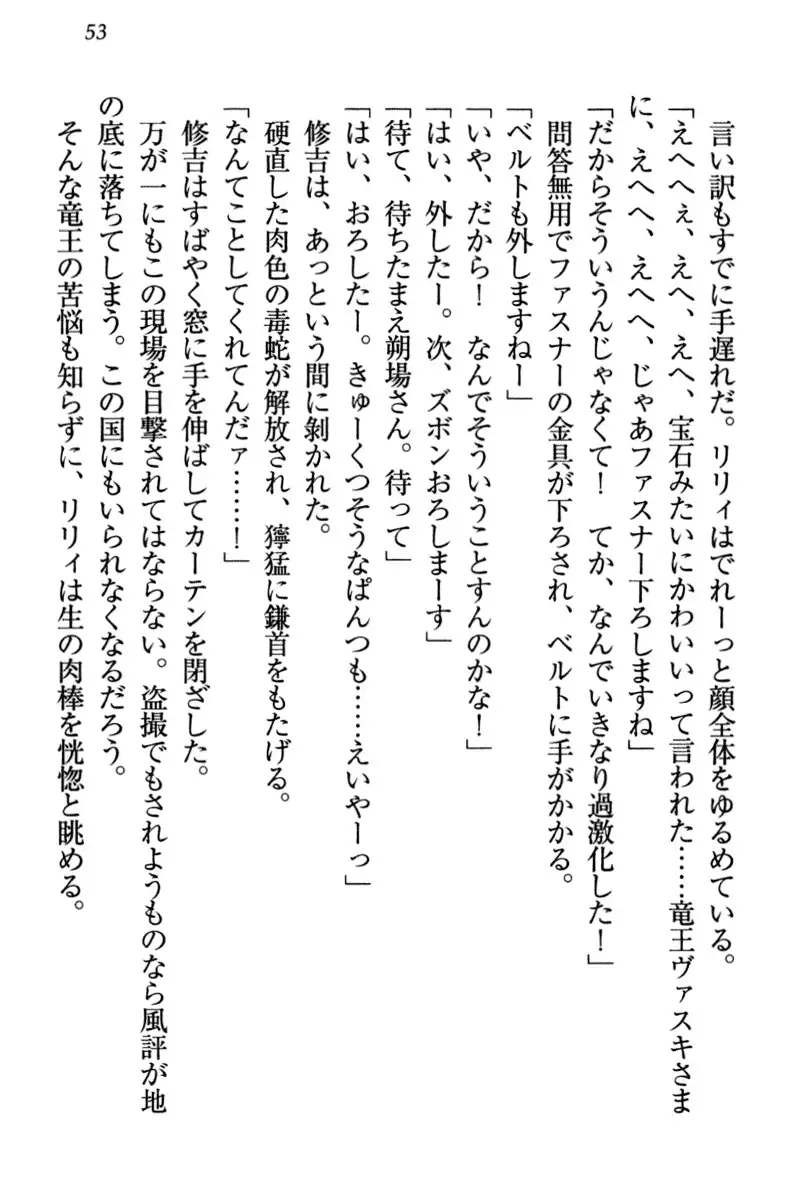 53
言い訳もすでに手遅れだ。リリィはでれーっと顔全体をゆるめている。
「えへへぇ、えへ、えへ、宝石みたいにかわいいって言われた……竜王ヴァスキさま
に、えへへ、えへへ、じゃあファスナー下ろしますね」
「だからそういうんじゃなくて！　てか、なんでいきなり過激化した！」
問答無用でファスナーの金具が下ろされ、ベルトに手がかかる。
「ベルトも外しますねー」
「いや、だから！　なんでそういうことすんのかな！」
「はい、外したー。次、ズボンおろしまーす」
「待て、待ちたまえ朔場さん。待って」
「はい、おろしたー。きゅーくつそうなぱんつも……えいやーっ」
修吉は、あっという間に剝かれた。
硬直した肉色の毒蛇が解放され、獰猛に鎌首をもたげる。
「なんてことしてくれてんだァ……！」
修吉はすばやく窓に手を伸ばしてカーテンを閉ざした。
万が一にもこの現場を目撃されてはならない。盗撮でもされようものなら風評が地
の底に落ちてしまう。この国にもいられなくなるだろう。
そんな竜王の苦悩も知らずに、リリィは生の肉棒を恍惚と眺める。